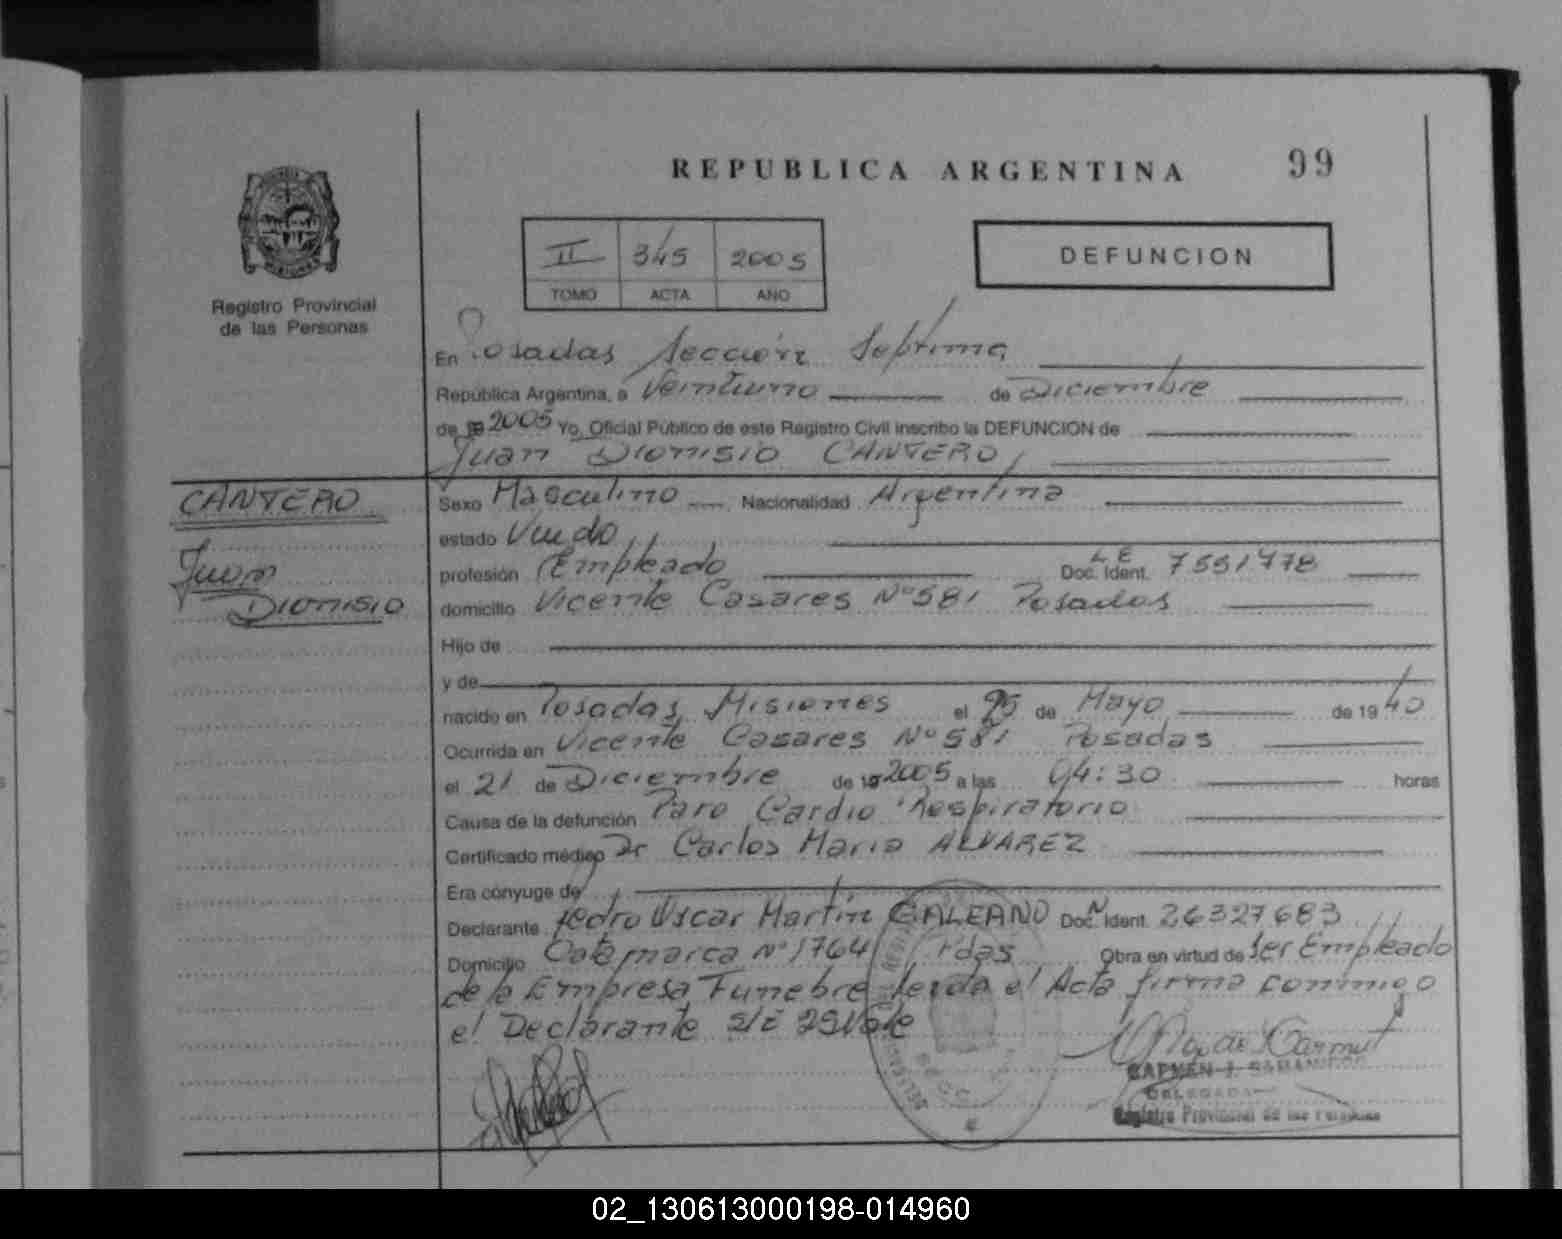 REPUBLICA ARGENTINA 99
Registro Provincial
de las Personas
II 345 2005
TOMO ACTA AÑO
DEFUNCION
En Posadas Sección Septima
República Argentina, a Veintiuno de Diciembre
de 19 2005 Yo, Oficial Público de este Registro Civil inscribo la DEFUNCION de
Juan Dionisio CANTERO
CANTERO
Juan
Dionisio
Sexo Masculino Nacionalidad Argentina
estado Viudo
profesión Empleado Doc. Ident. L E 7551778
domicilio Vicente Casares Nº 581 Posadas
Hijo de
y de
nacido en Posadas Misiones el 25 de Mayo de 1940
Ocurrida en Vicente Casares Nº 581 Posadas
el 21 de Diciembre de 19 2005 a las 04:30 horas
Causa de la defunción Paro Cardio Respiratorio
Certificado médico Dr Carlos Maria ALVAREZ
Era cónyuge de
Declarante Pedro Oscar Martín GALEANO Doc. Ident. 26327683
Domicilio Catamarca Nº 1764 Pdas Obra en virtud de Ser Empleado
de la Empresa Funebre leida el Acta firma conmigo
el Declarante S/E 25 Vale
CARMEN I.
DELEGADA
Registro Provincial de las Personas
02_130613000198-014960